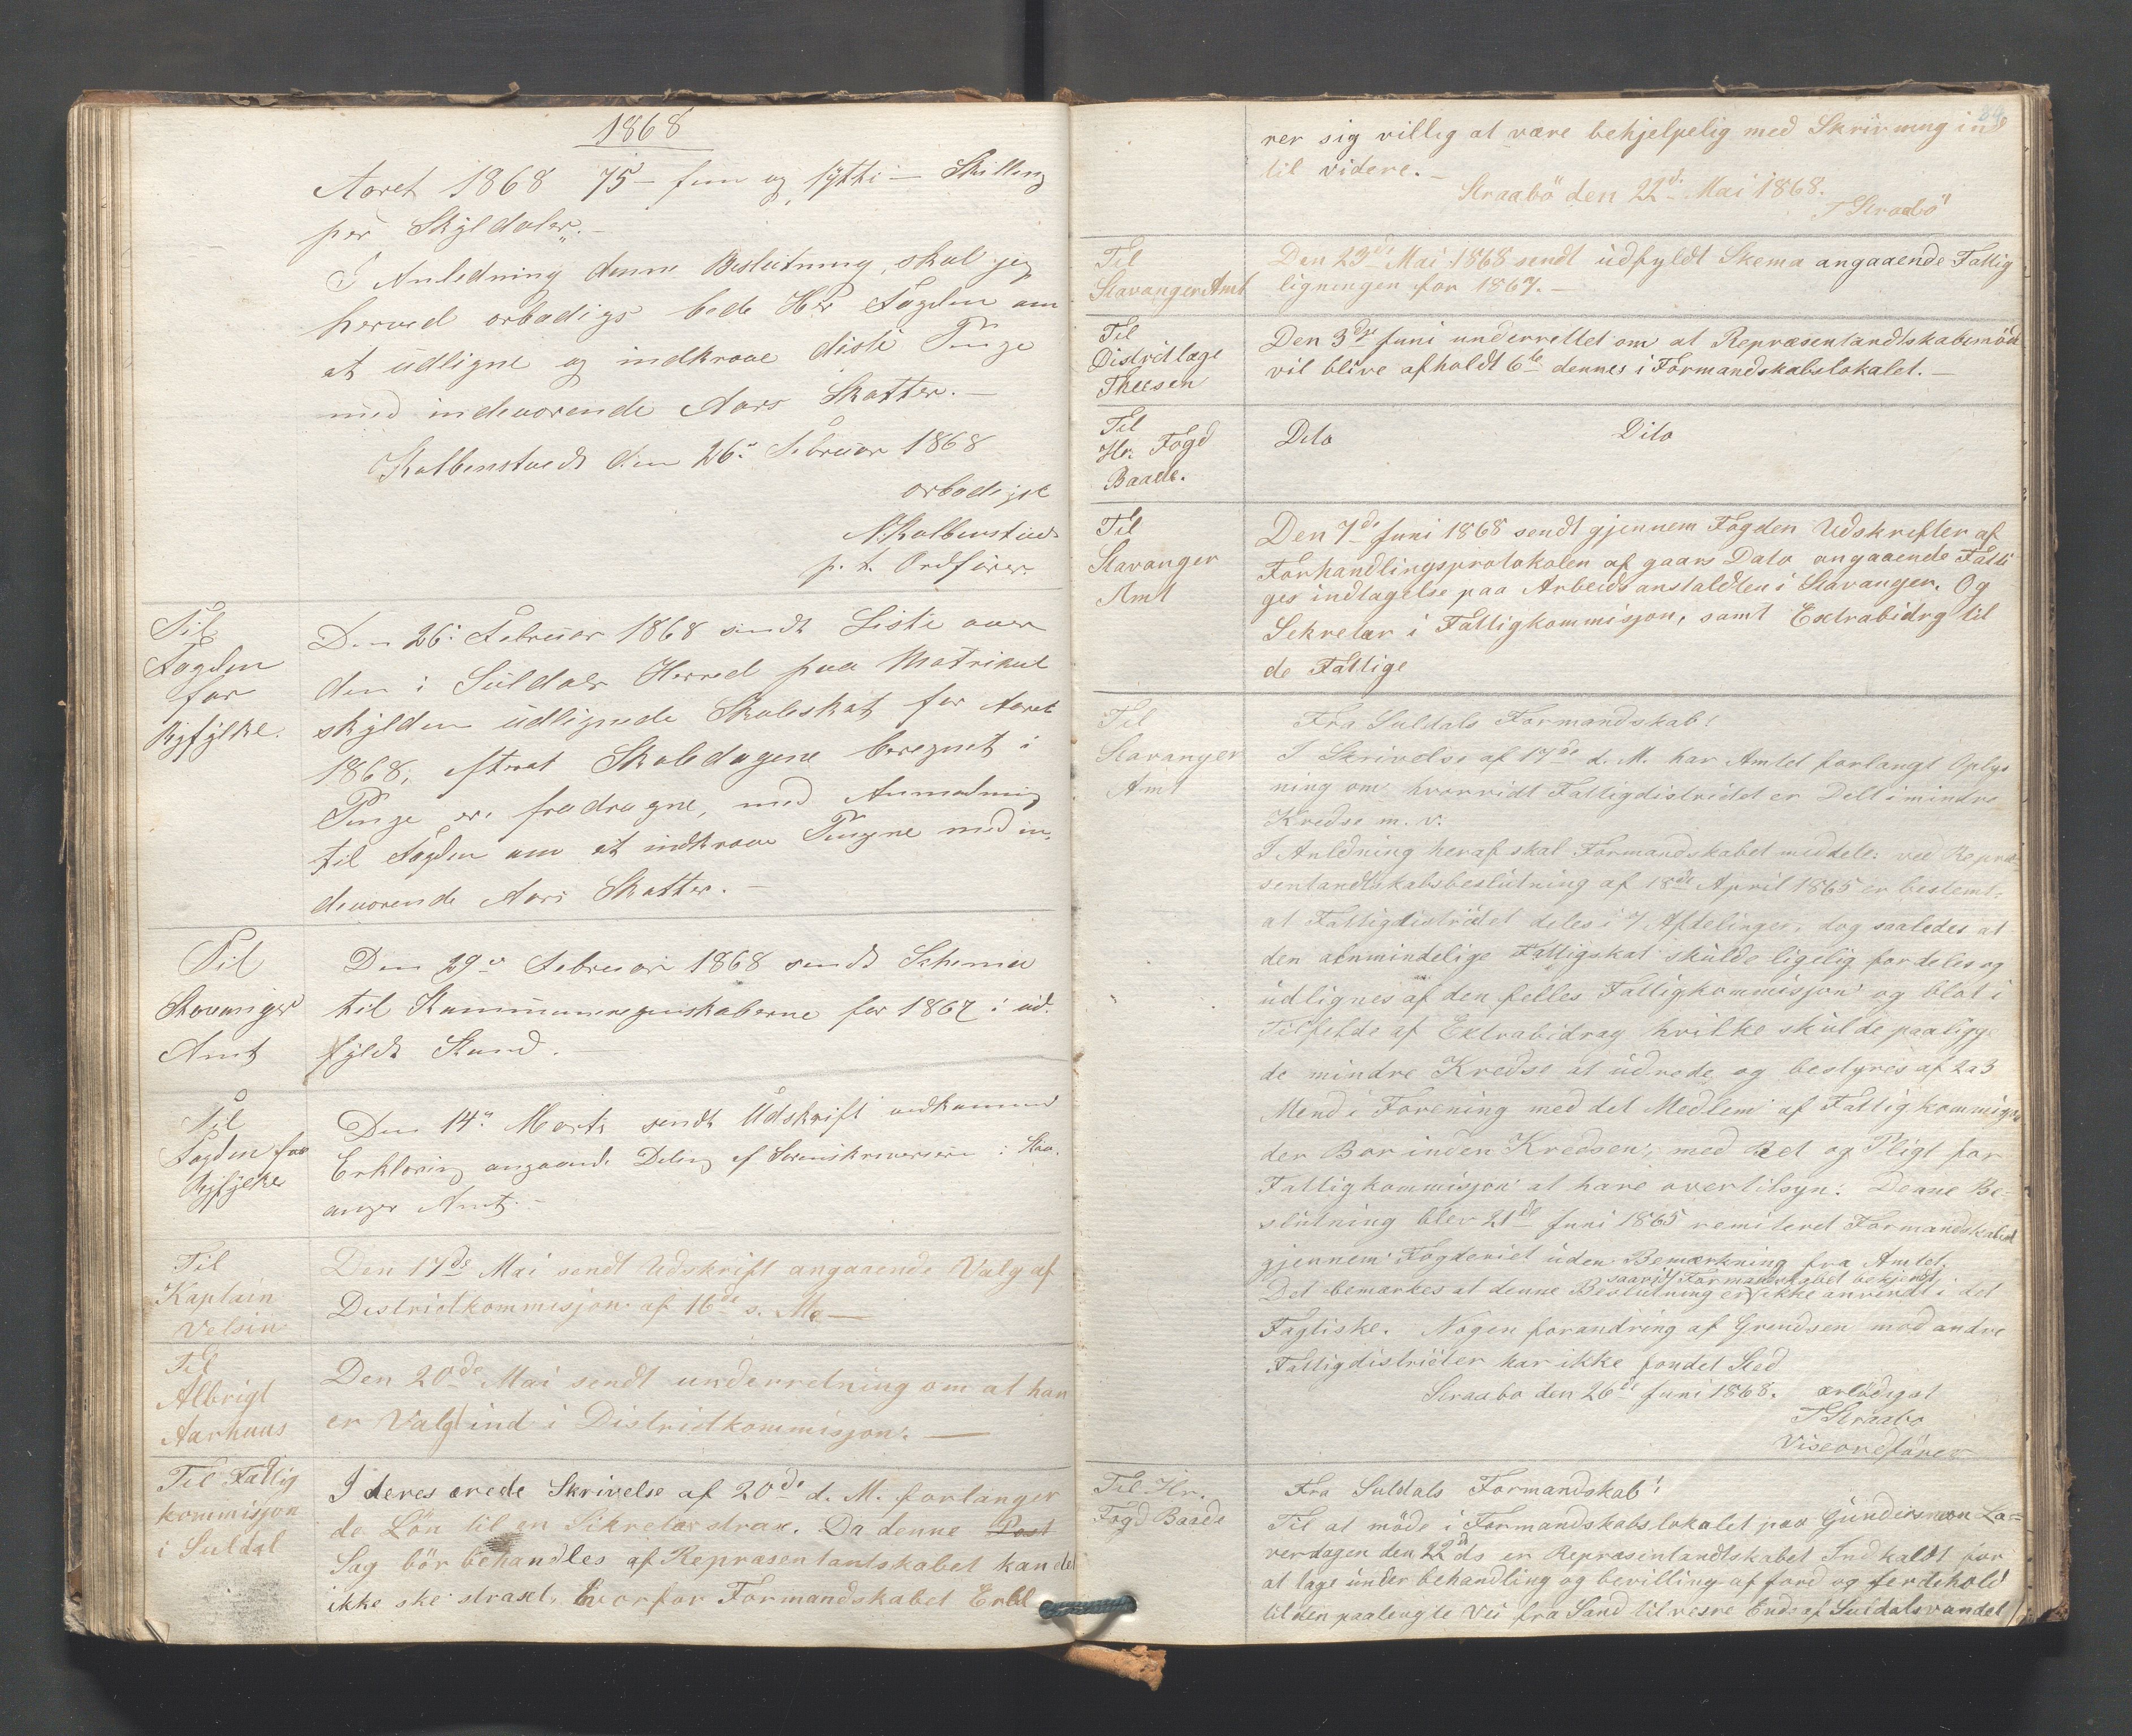 1868
Aaret 1868 75 – fem og sytti – Skilling
per Skyldaler. –
I Anledning denne Beslutning, skal jeg
herved ærbødigs bede Hr. Fogden om
at udligne og indkræve disse Penge
med indeværende Aars Skatter. –
Kolbenstvedt den 26. Februar 1868
ærbødigst
N. Kolbenstvedt
p. t. Ordfører.
Til
Fogden
for
Ryfylke.
Den 26. Februar 1868 sendt Liste over
den i Suldals Herred paa Matrikul
skylden udlignede Skoleskat for Aaret
1868, efterat Skoledagene beregnet i
Penge ere fradragne, med Anmodning
til Fogden om at indkræve Pengene med in-
deværende Aars Skatter. –
Til
Stavanger
Amt
Den 29de Februar 1868 sendt Schema
til Kommuneregnskaberne for 1867 i ud-
fyldt Stand. –
Til
Fogden for
Ryfylke
Den 14. Marts sendt Udskrift vedkommend
Erklæring angaaende Deling af i Stav-
anger Amt. –
Til
Kaptain
Velsin
Den 17de Mai sendt Udskrift angaaende Valg af
Distriktkommisjon af 16de s. M. –
Til
Albrigt
Aarhuus
Den 20de Mai sendt underretning om at han
er Valgt ind i Distriktkommisjon. –
Til Fattig
kommisjon
i Suldal
I deres ærede Skrivelse af 20de d. M. forlanger
de Lön til en Sikretær strax. Da denne Post
Sag bör behandles af Repræsentantskabet kan de
ikke ske straxt, hvorfor Formandskabet Erkl
rer sig villig at være behjelpelig med Skrivning ind
til videre. –
Straabö den 22d. Mai 1868.
T Straabö
Til
Stavanger Amt
Den 23de Mai 1868 sendt udfyldt Skema angaaende Fattig
ligningen for 1867. –
Til
Distritlæge
Theesen
Den 3dje Juni underrettet om at Repræsentandtskabsmöde
vil blive afholdt 6te dennes i Formandskabslokalet. –
Til
Hr. Fogd
Baade.
Dito Dito
Til
Stavanger
Amt
Den 7de Juni 1868 sendt gjennem Fogden Udskrifter af
Forhandlingsprotokolen af gaars Dato angaaende Fatti
ges indtagelse paa Arbeidsanstaldten i Stavanger. Og
Sekretær i Fattigkommisjon, samt Extrabidrg til
de Fattige
Til
Stavanger
Amt
Fra Suldals Formandskab!
I Skrivelse af 17de d. M. har Amtet forlangt Oplys
ning om hvorvidt Fattigdistriktet er Delt i mindre
Kredse m. v.
I Anledning heraf skal Formandskabet meddele: ved Repræ-
sentandtskabsbeslutning af 18de April 1865 er bestemt.
at Fattigdistriktet deles i 7 Afdelinger, dog saaledes at
den almindelige Fattigskat skulde ligelig fordeles og
udlignes af den felles Fattigkommisjon og blot i
Tilfelde af Extrabidrag hvilke skulde paaligge
de mindre Kredse at udrede og bestyres af 2 a 3
Mend i Forening med det Medlem af Fattigkommisjon
der Bor inden Kredsen; med Ret og Pligt for
Fattigkommisjon at have overtilsyn. Denne Be-
slutning blev 21de Juni 1865 remiteret Formandskabet
gjennem Fogderiet uden Bemærkning fra Amtet.
saavidt Formandskabet bekjendt
Det bemærkes at denne Beslutning er ikke anvendt i det
Fagtiske. Nogen forandring af Grendsen mod andre
Fattigdistrikter har ikke fundet Sted
Straabø den 26de Juni 1868. ærbödigst
T Straabø
Viseordförer
Til Hr.
Fogd Baade
Fra Suldals Formandskab!
Til at möde i Formandskabslokalet paa Lö-
verdagen den 22d ds er Repræsentandtskabet Indkaldt for
at tage under behandling og bevilling af jord og ferdehold
til den paatengte Vei fra Sand til nesre Ende af Suldalsvandet